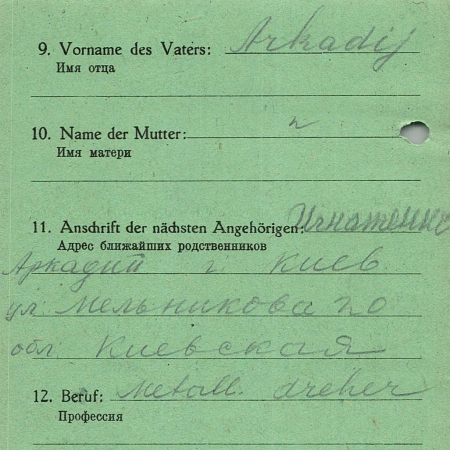 9. Vorname des Vaters: Arkadij
Имя отца
10. Name der Mutter:
Имя матери
11. Anschrift der nächsten Angehörigen: Игнатенко
Адрес ближайших родственников
Аркадий г. Киев
ул. Мельникова 20
обл. Киевская
12. Beruf: Metall. dreher
Профессия